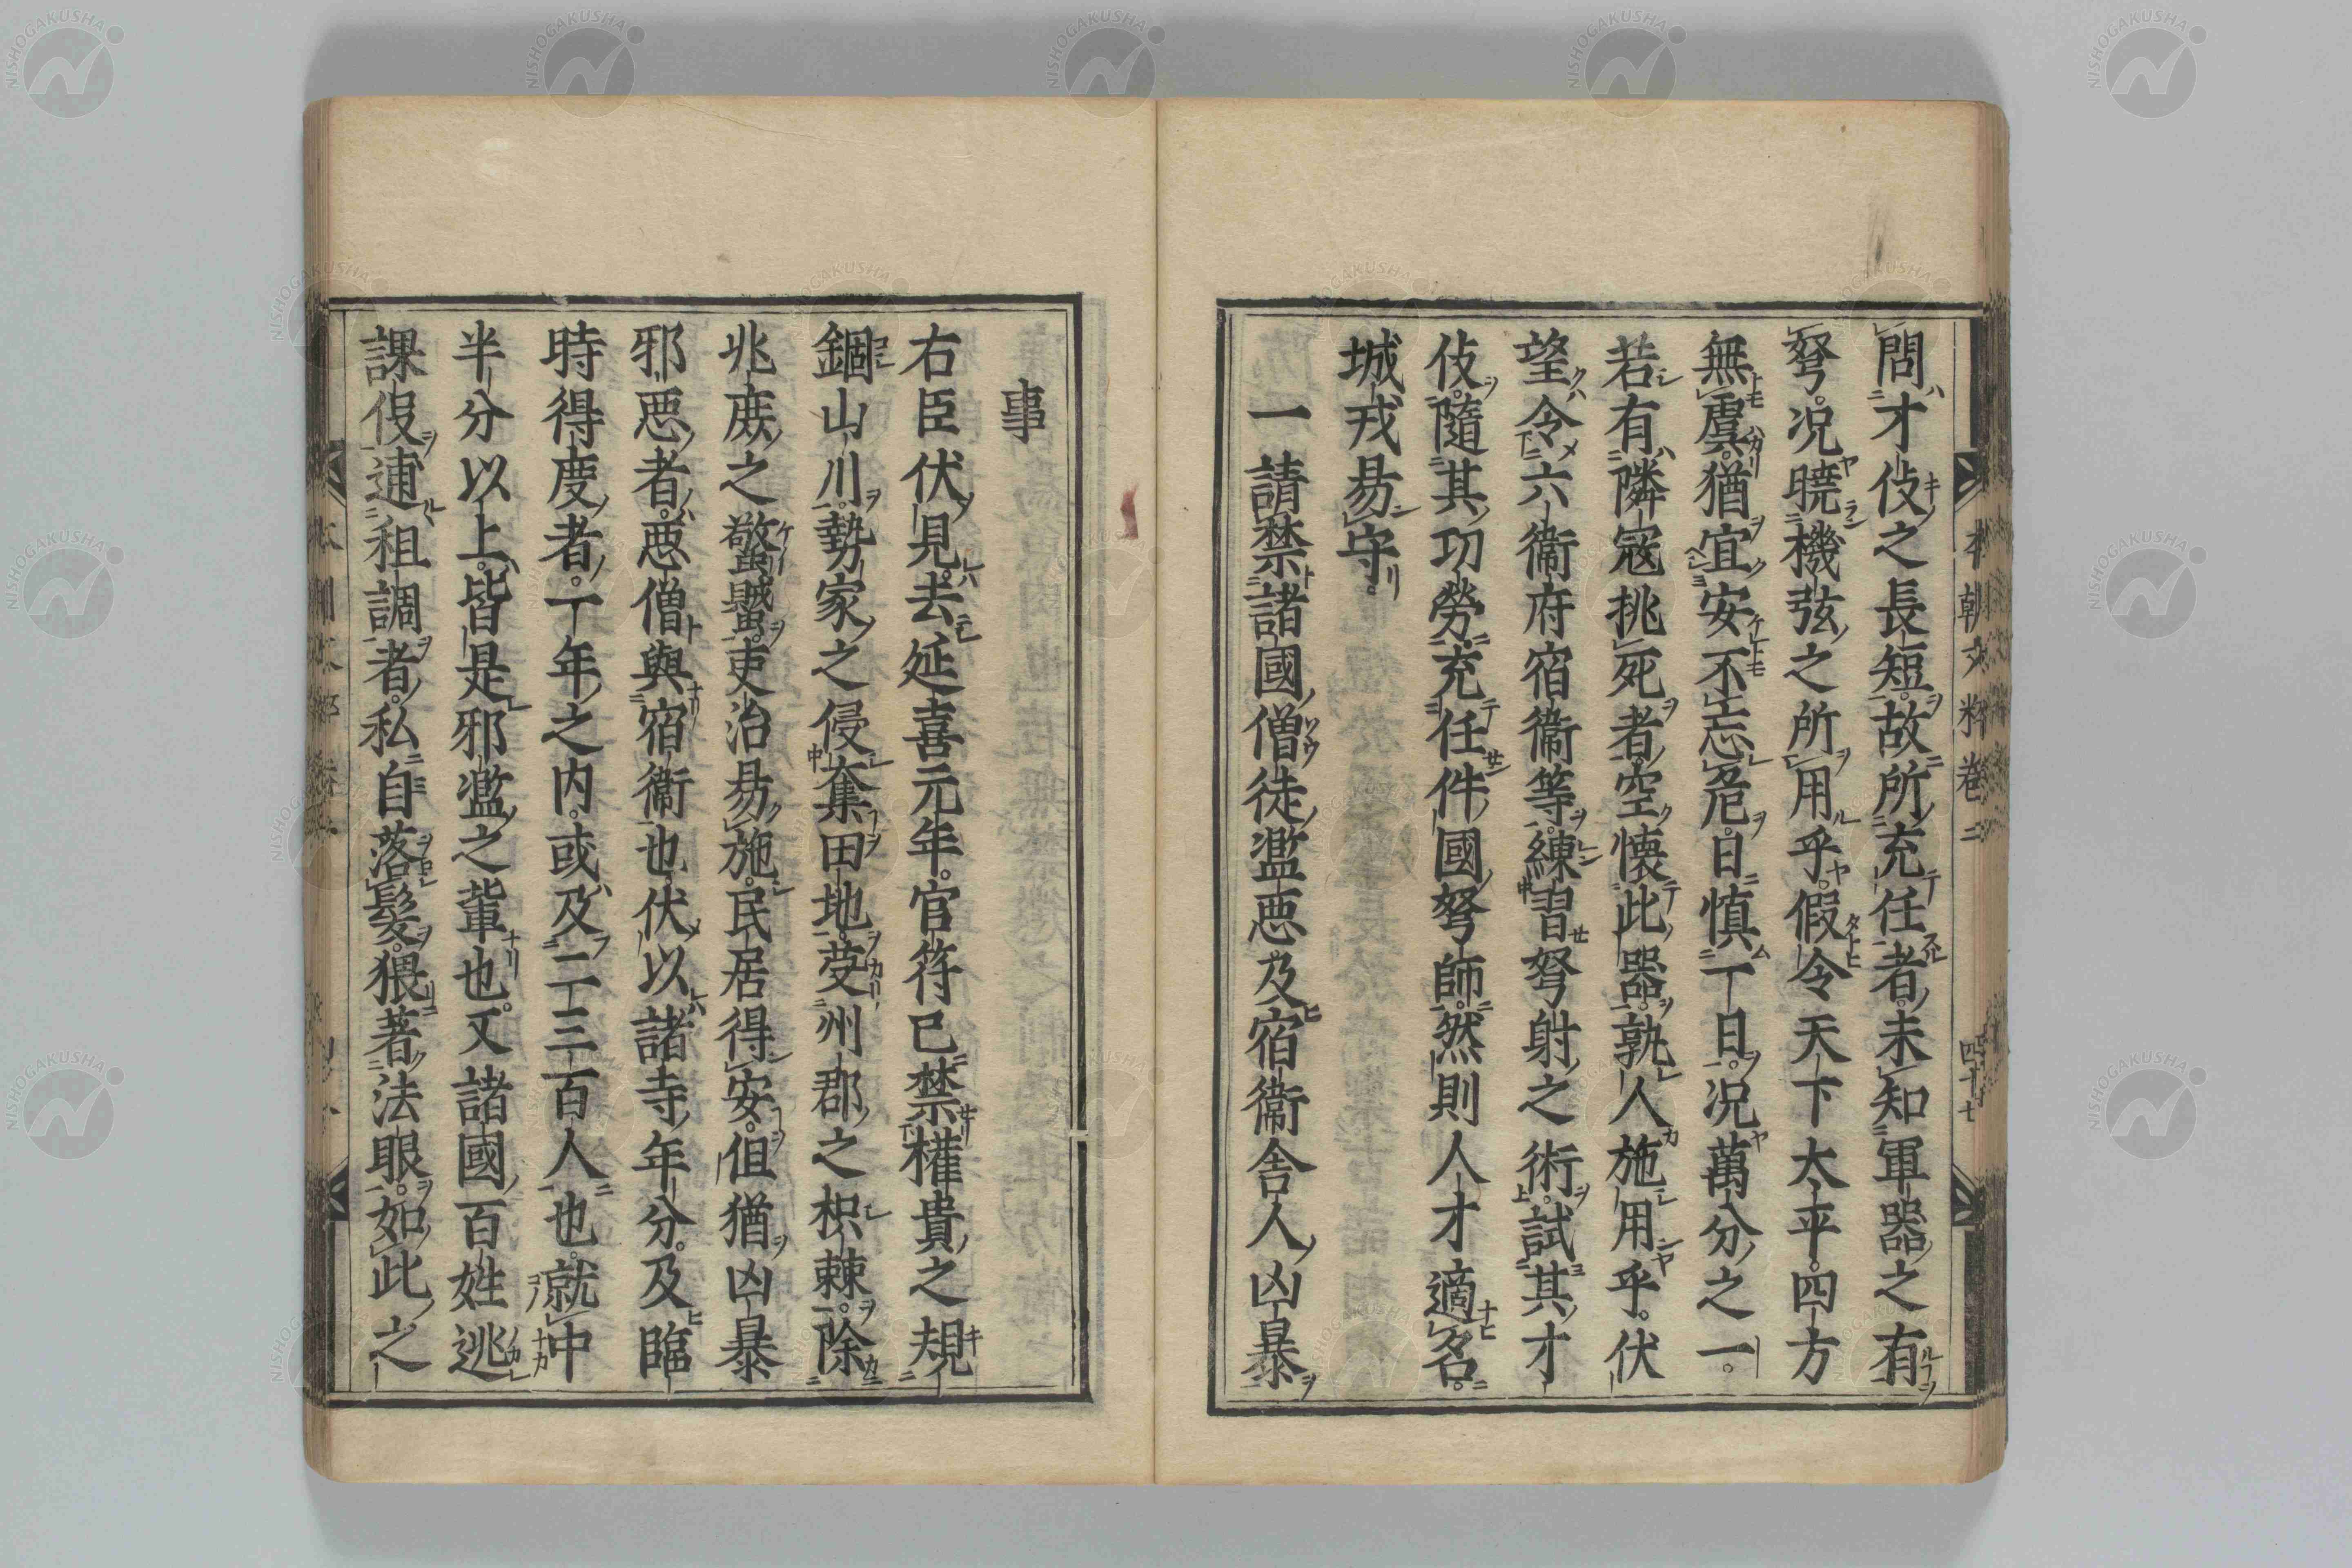 問才伎之長短。故所充任者。未知軍器之有
弩。況曉機弦之所用乎。假令天下太平。四方
無虞。猶宜安不忘危。日愼一日。況萬分之一。
若有隣寇挑死者。空懷此器。孰人施用乎。伏
望令六衞府宿衞等。練習弩射之術。試其才
伎。隨其功勞。充任件國弩師。然則人才適名。
城戎易守。
一請禁諸國僧徒濫惡及宿衞舍人凶暴
本朝文粹卷二
四十七
事
右臣伏見。去延喜元年。官符已禁權貴之規
錮山川。勢家之侵奪田地。芟州郡之枳棘。除
兆庶之蟊蠈。吏治易施。民居得安。但猶凶暴
邪惡者。惡僧與宿衞也。伏以諸寺年分。及臨
時得度者。一年之内。或及二三百人也。就中
半分以上。皆是邪濫之輩也。又諸國百姓逃
課役。逋租調者。私自落髮。猥著法服。如此之
NISHOGAKUSHA